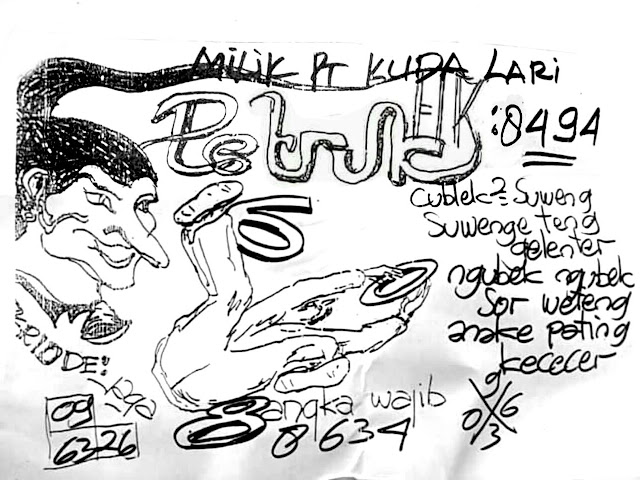 MILIK PT KUDA LARI
:8494
Cublek2 Suweng
Suwenge teng
gelenter
ngubek ngubek
Sor weteng
anake pating
kececer
6
RIODE:
09
6326
8angka wajib
8634
0 6
3